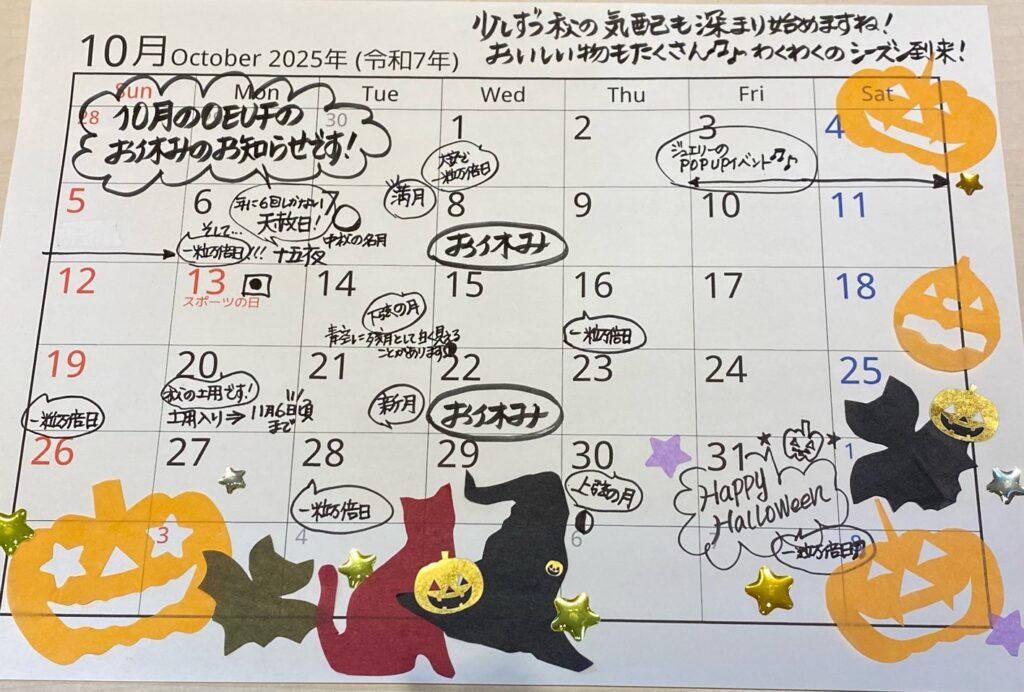 少しずつ秋の気配も深まり始めますね!
おいしい物もたくさん♫♪わくわくのシーズン到来!
10月 October 2025年 (令和7年)
Sun Mon Tue Wed Thu Fri Sat
10月のOEUFの
お休みのお知らせです!
28 30 1 2 3 4
大安で
一粒万倍日
ジュエリーの
POPUPイベント♫♪
5 6 7 8 9 10 11
年に6回しかない
天赦日!
そして…
一粒万倍日!!!
満月
中秋の名月
十五夜
お休み
12 13 14 15 16 17 18
スポーツの日
下弦の月
青空に残月として白く見える
ことがあります
一粒万倍日
19 20 21 22 23 24 25
一粒万倍日
秋の土用です!
土用入り⇒11月6日頃
まで
新月
お休み
26 27 28 29 30 31 1
一粒万倍日
上弦の月
Happy
Halloween
一粒万倍日
3 4 6